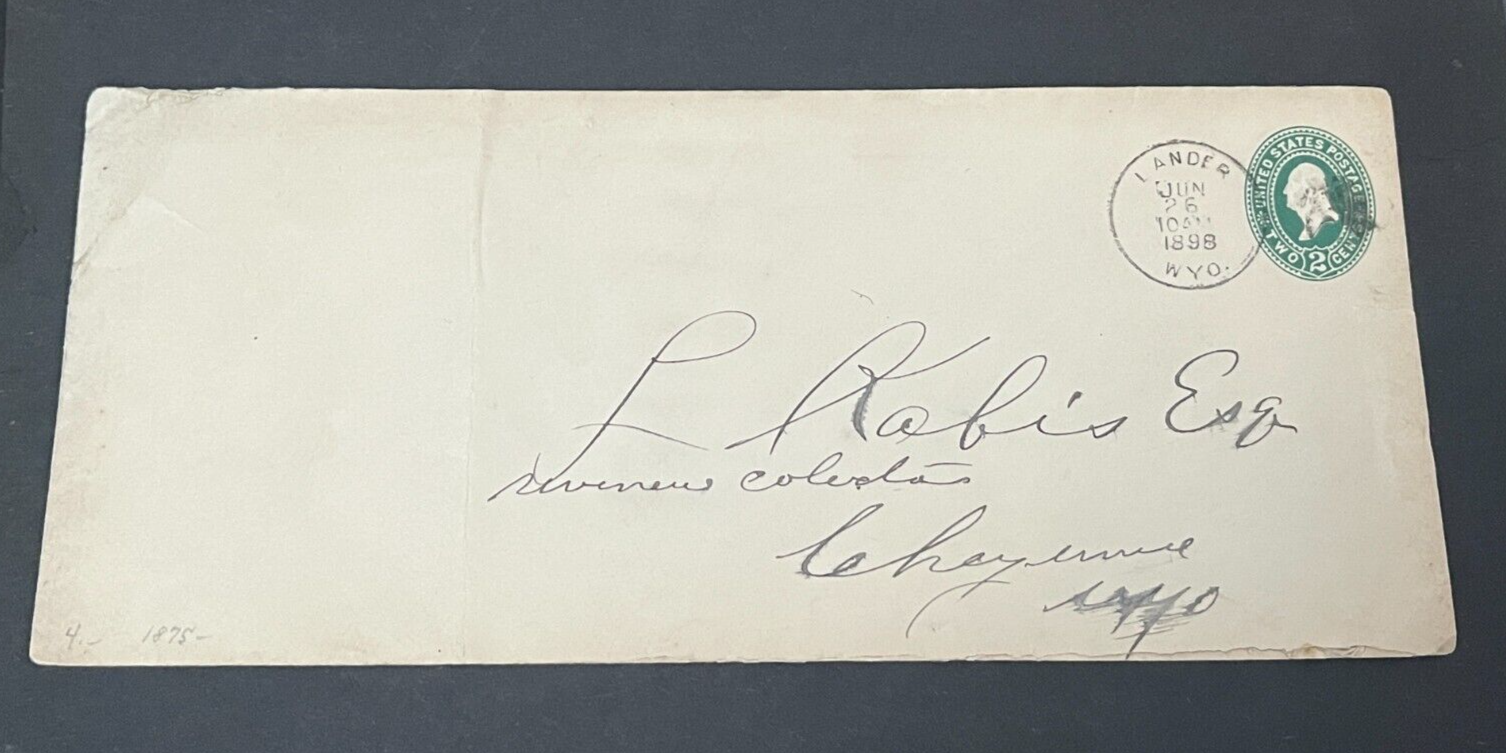 LANDER
JUN
26
10AM
1898
WYO.
UNITED STATES POSTAGE
TWO 2 CENTS
L Kabis Esq
revenew colector
Cheyenne
Wyo
4.- 1875-